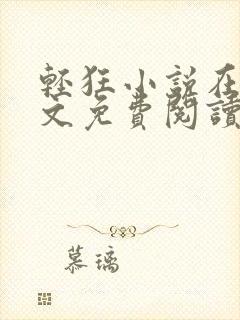 輕狂小說在
文免費閱讀
慕璃